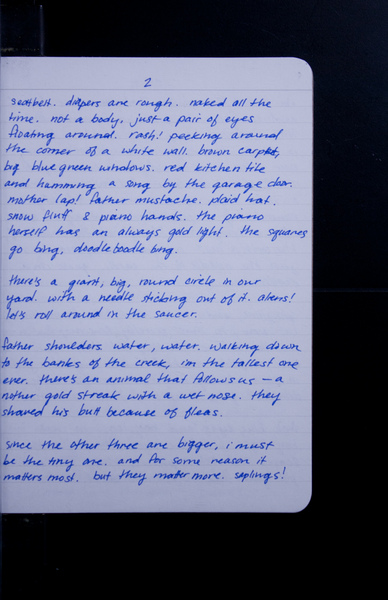 2
seatbelt. diapers are rough. naked all the
time. not a body, just a pair of eyes
floating around. rash! peeking around
the corner of a white wall. brown carpet,
big blue green windows. red kitchen tile
and humming a song by the garage door.
mother lap! father mustache. plaid hat.
snow fluff & piano hands. the piano
herself has an always gold light. the squares
go bing, doodleboodle bing.
there's a giant, big, round circle in our
yard. with a needle sticking out of it. aliens!
let's roll around in the saucer.
father shoulders. water, water. walking down
to the banks of the creek, i'm the tallest one
ever. there's an animal that follows us — a
nother gold streak with a wet nose. they
shaved his butt because of fleas.
since the other three are bigger, i must
be the tiny one. and for some reason it
matters most. but they matter more. saplings!